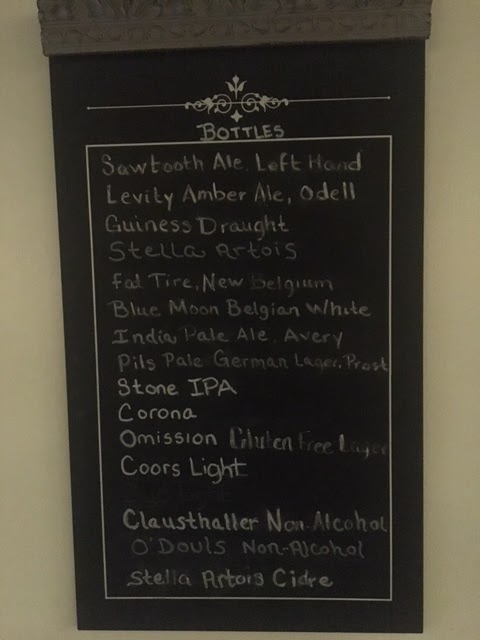 BOTTLES
Sawtooth Ale, Left Hand
Levity Amber Ale, Odell
Guiness Draught
Stella Artois
Fat Tire, New Belgium
Blue Moon Belgian White
India Pale Ale, Avery
Pils Pale German Lager, Prost
Stone IPA
Corona
Omission Gluten Free Lager
Coors Light
Clausthaller Non-Alcohol
O'Douls Non-Alcohol
Stella Artois Cidre